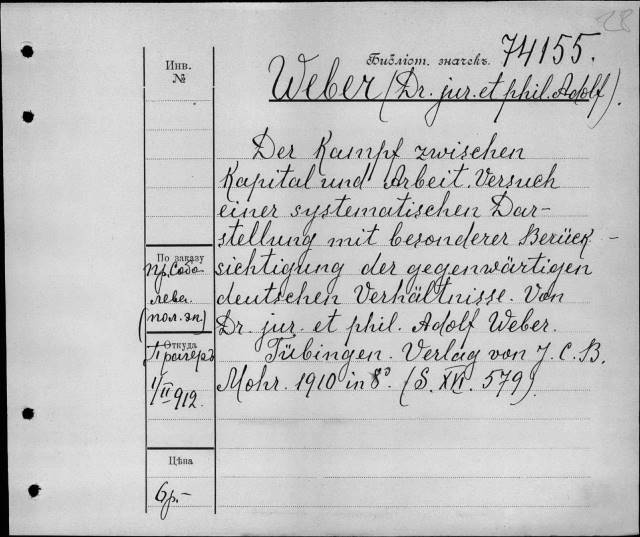 28
Библіот. значекъ 74155.
Weber (Dr. jur. et phil. Adolf).
Инв.
№
Der Kampf zwischen
Kapital und Arbeit. Versuch
einer systematischen Dar-
stellung mit besonderer Berück-
sichtigung der gegenwärtigen
deutschen Verhältnisse. Von
Dr. jur. et phil. Adolf Weber.
Tübingen. Verlag von J. C. B.
Mohr. 1910 in 8º. (S. XVI. 579).
По заказу
пр. Собо
лева.
(пол. эк)
Откуда
Прагеръ
1/II 912.
Цѣна
6р.-